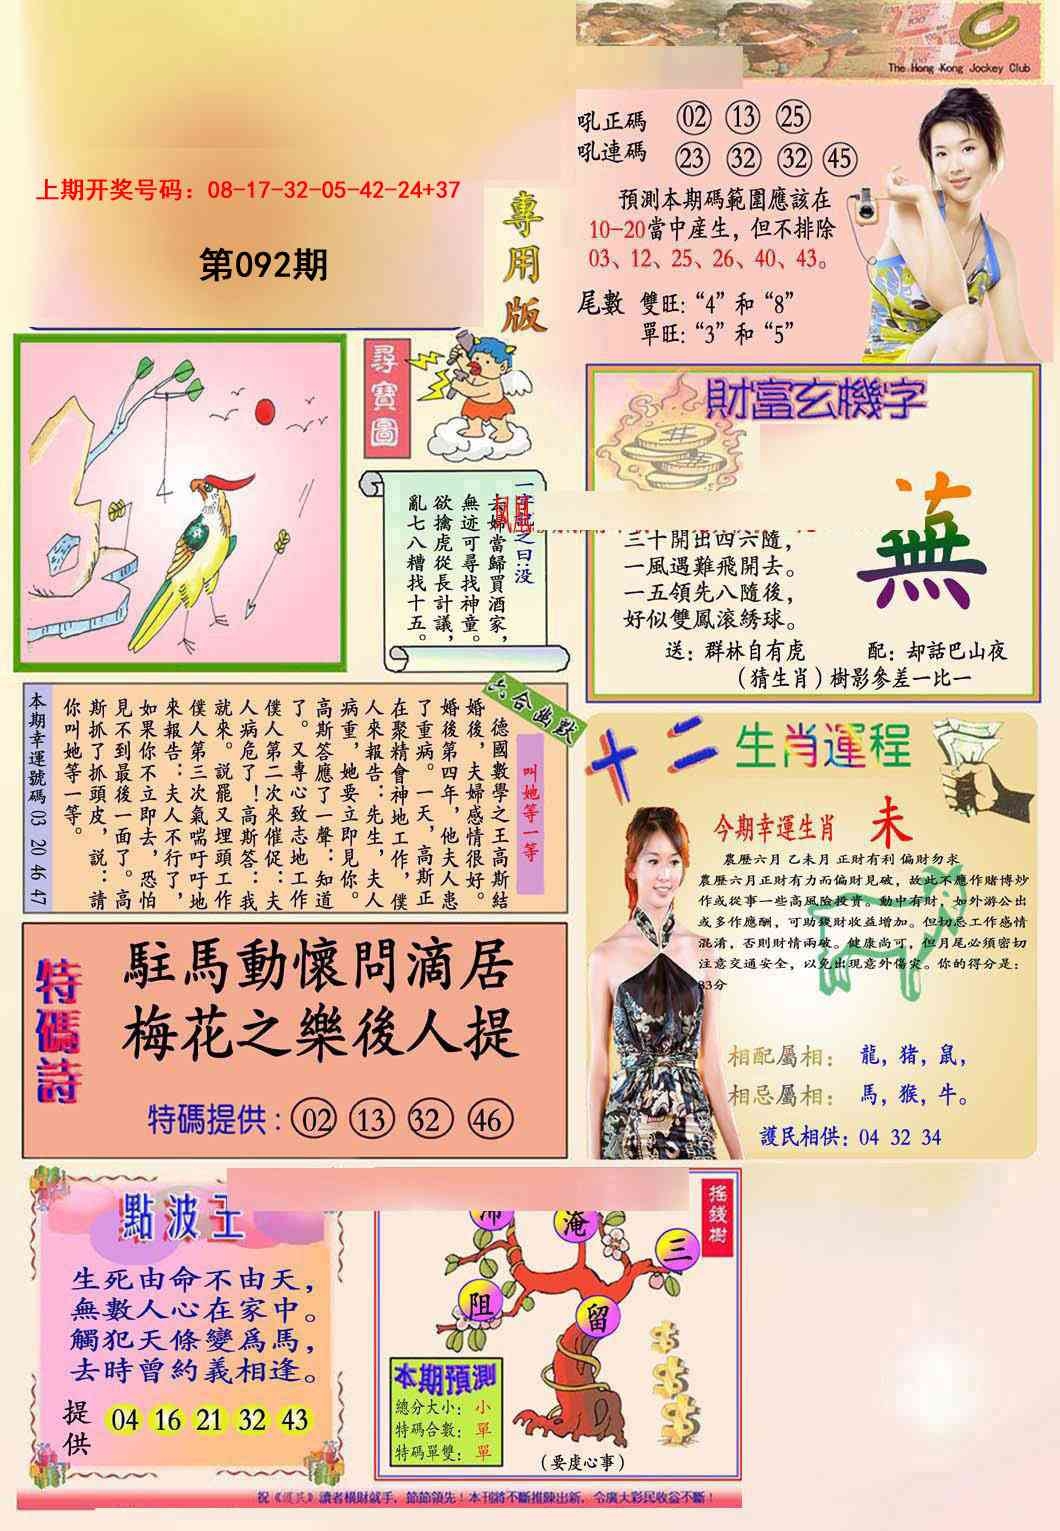 The Hong Kong Jockey Club
上期开奖号码：08-17-32-05-42-24+37
第092期
專用版
吼正碼 02 13 25
吼連碼 23 32 32 45
預測本期碼範圍應該在
10-20當中産生，但不排除
03、12、25、26、40、43。
尾數 雙旺:“4”和“8”
單旺:“3”和“5”
尋寶圖
去婦當歸買酒家，
無迹可尋找神童。
欲擒虎從長計議，
亂七八糟找十五。
財富玄機字
三十開出四六隨，
一風遇難飛開去。
一五領先八隨後，
好似雙鳳滚綉球。
送：群林自有虎 配：却話巴山夜
（猜生肖）樹影參差一比一
六合幽默
叫她等一等
德國數學之王高斯結
婚後，夫婦感情很好。
婚後第四年，他夫人患
了重病。一天，高斯正
在聚精會神地工作，僕
人來報告：先生，夫人
病重，她要立即見你。
高斯答應了一聲：知道
了。又專心致志地工作
僕人第二次來催促：夫
人病危了！高斯答：我
就來。説罷又埋頭工作
僕人第三次氣喘吁吁地
來報告：夫人不行了，
如果你不立即去，恐怕
見不到最後一面了。高
斯抓了抓頭皮，説：請
你叫她等一等。
本期幸運號碼 03 20 46 47
十二生肖運程
今期幸運生肖 未
農歷六月 乙未月 正財有利 偏財勿求
農歷六月正財有力而偏財見破，故此不應作賭博炒
作或從事一些高風險投資。動中有財，如外游公出
或多作應酬，可助獲財收益增加。但切忌工作感情
混淆，否則財情兩破。健康尚可，但月尾必須密切
注意交通安全，以免出現意外傷灾。你的得分是：
83分
相配屬相： 龍，猪，鼠，
相忌屬相： 馬，猴，牛。
護民相供：04 32 34
特碼詩
駐馬動懷問滴居
梅花之樂後人提
特碼提供：02 13 32 46
點波王
生死由命不由天，
無數人心在家中。
觸犯天條變爲馬，
去時曾約義相逢。
提供 04 16 21 32 43
搖錢樹
淹
三
阻
留
本期預測
總分大小：小
特碼合數：單
特碼單雙：單
（要虔心事）
祝《護民》讀者横財就手，節節領先！本刊將不斷推陳出新，令廣大彩民收益不斷！